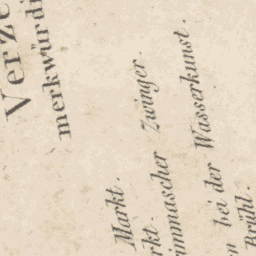 Verze
merkwürdi
Markt.
rkt.
immascher Zwinger.
n bei der Wasserkunst.
Brühl.